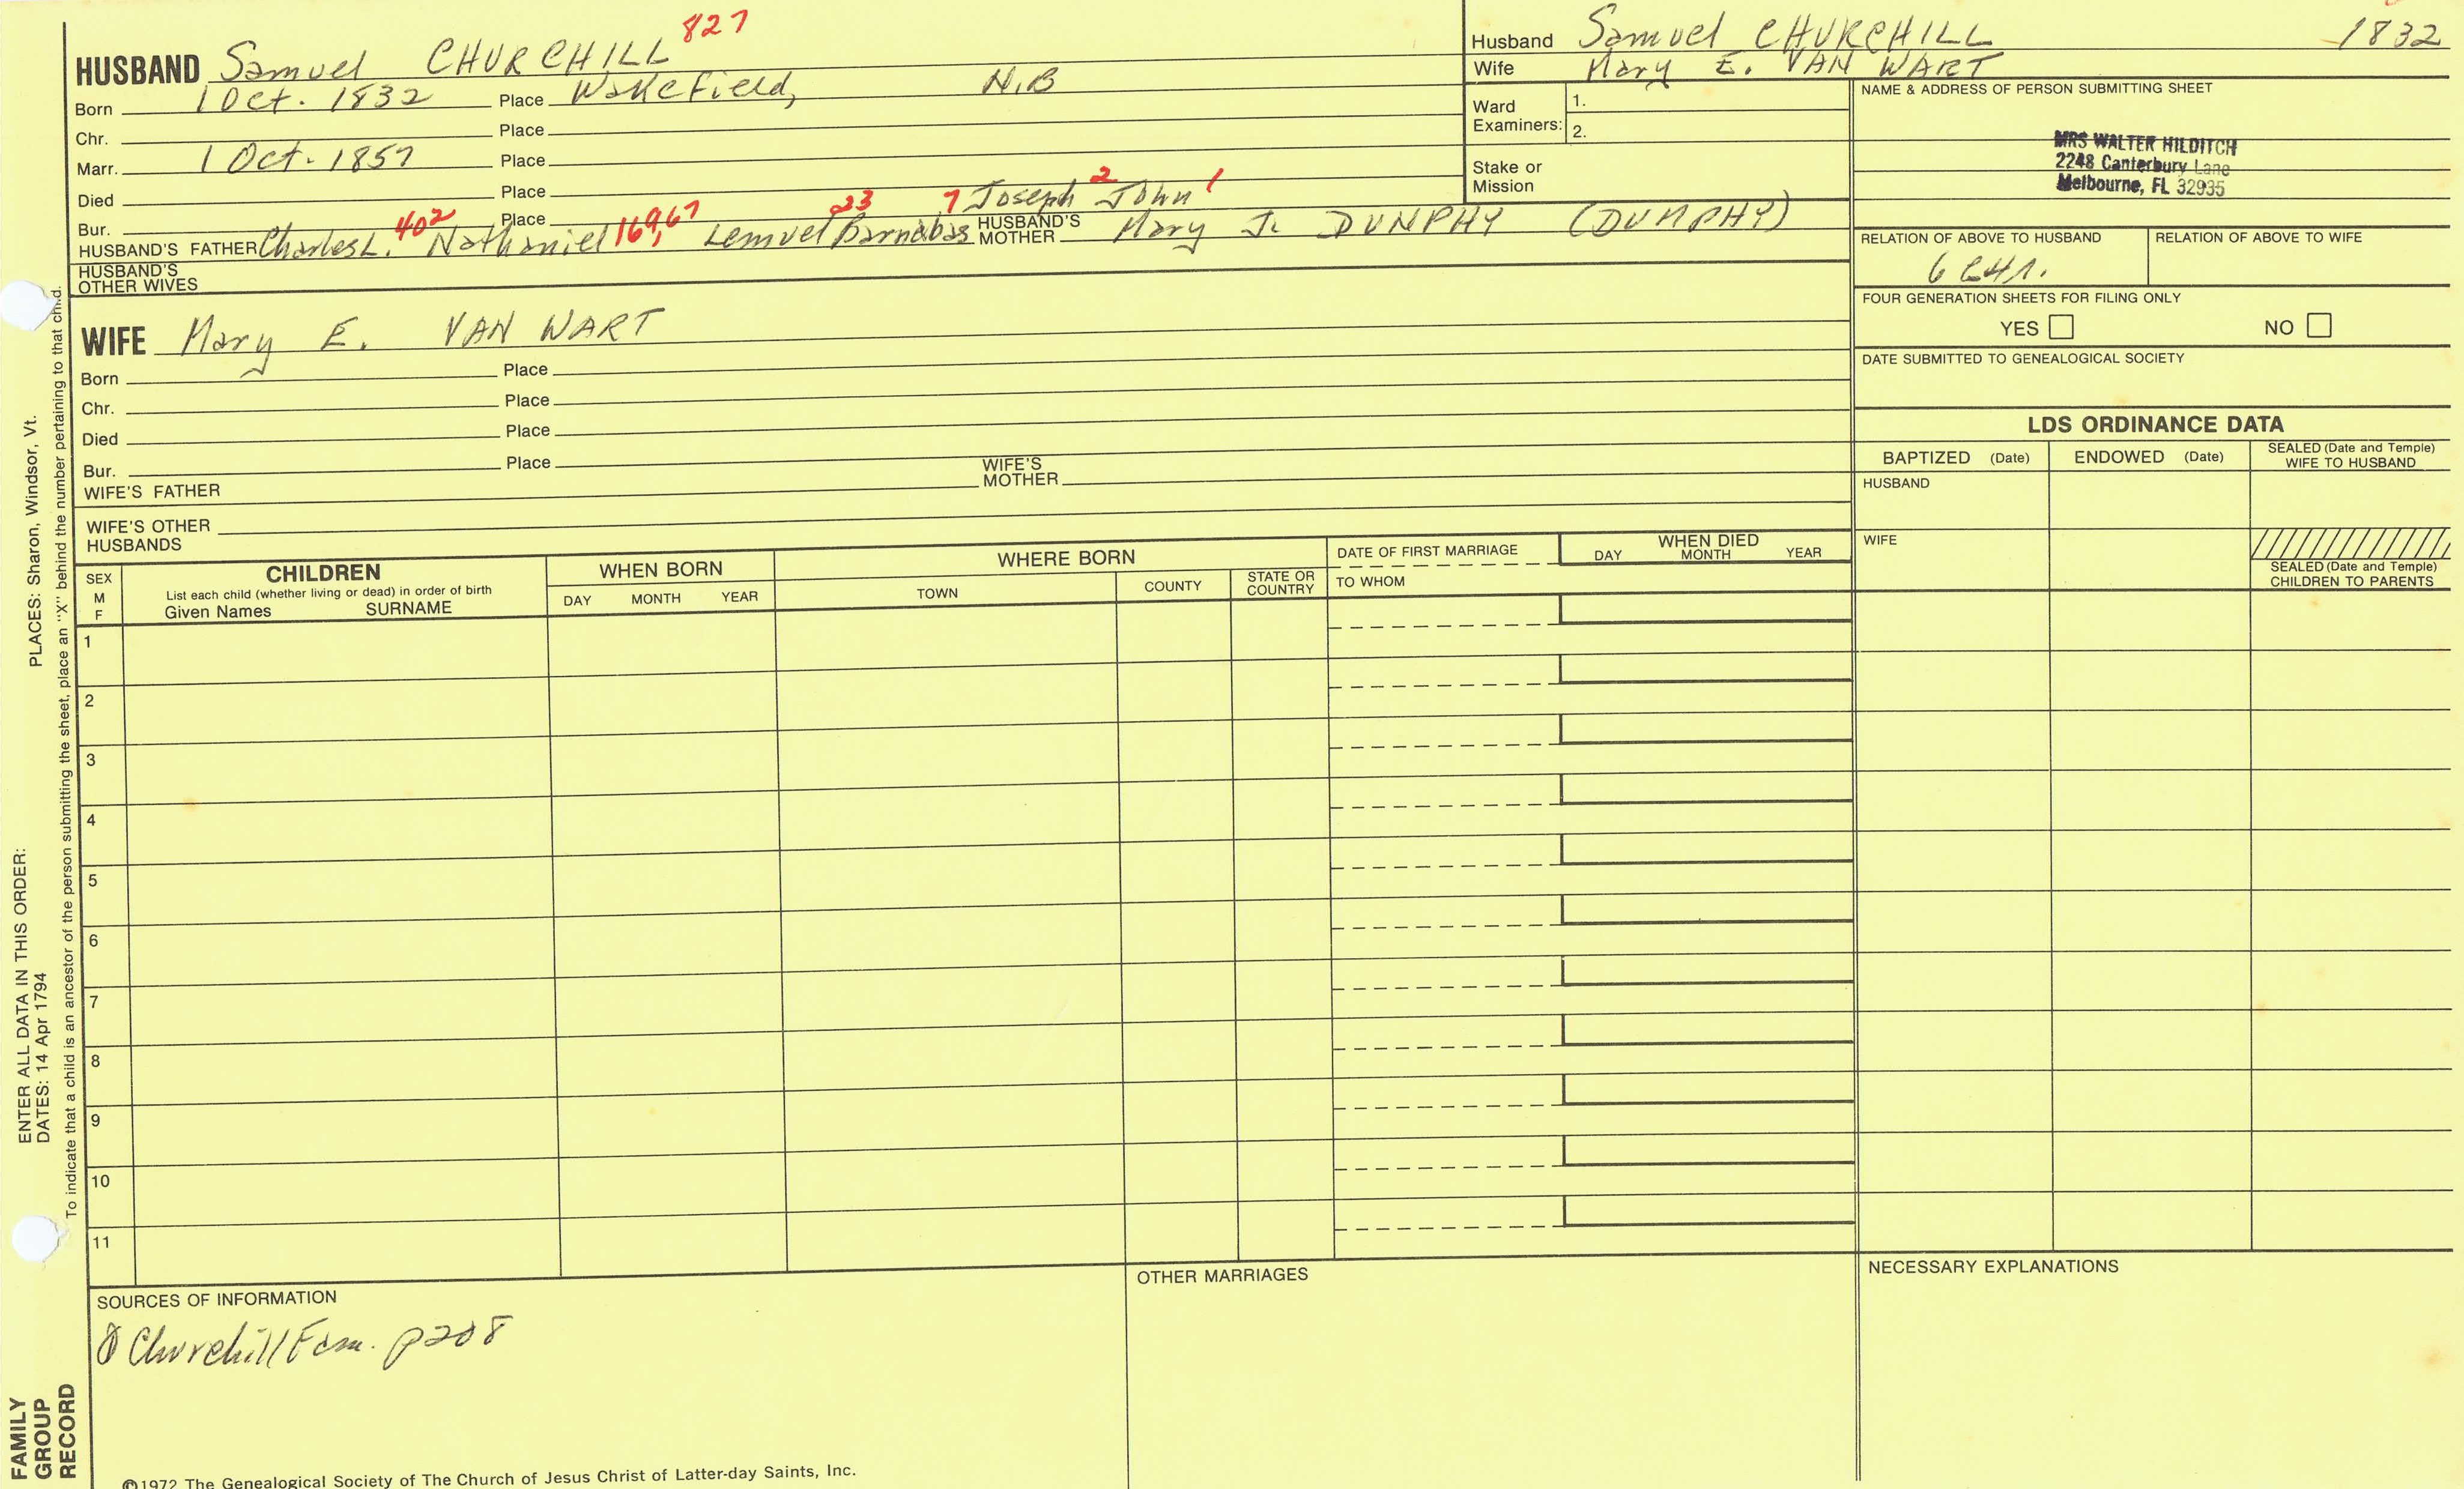 HUSBAND Samuel CHURCHILL 827
Born 1 Oct. 1832 Place Wakefield, N.B
Chr. Place
Marr. 1 Oct. 1857 Place
Died Place
Bur. Place
HUSBAND'S FATHER Charles L. 402 Nathaniel 169, 67 Lemuel 23 Barnabas 7 Joseph 2 John 1 HUSBAND'S MOTHER Mary J. DUNPHY (DUMPHY)
HUSBAND'S OTHER WIVES
WIFE Mary E. VAN WART
Born Place
Chr. Place
Died Place
Bur. Place
WIFE'S FATHER WIFE'S MOTHER
WIFE'S OTHER HUSBANDS
Husband Samuel CHURCHILL 1832
Wife Mary E. VAN WART
Ward Examiners: 1.
2.
Stake or Mission
NAME & ADDRESS OF PERSON SUBMITTING SHEET
MRS WALTER HILDITCH
2248 Canterbury Lane
Melbourne, FL 32935
RELATION OF ABOVE TO HUSBAND RELATION OF ABOVE TO WIFE
FOUR GENERATION SHEETS FOR FILING ONLY
YES NO
DATE SUBMITTED TO GENEALOGICAL SOCIETY
LDS ORDINANCE DATA
BAPTIZED (Date) ENDOWED (Date) SEALED (Date and Temple) WIFE TO HUSBAND
HUSBAND
WIFE
SEALED (Date and Temple)
CHILDREN TO PARENTS
SEX
M
F
CHILDREN
List each child (whether living or dead) in order of birth
Given Names SURNAME
WHEN BORN
DAY MONTH YEAR
WHERE BORN
TOWN COUNTY STATE OR COUNTRY
DATE OF FIRST MARRIAGE
TO WHOM
WHEN DIED
DAY MONTH YEAR
1
2
3
4
5
6
7
8
9
10
11
SOURCES OF INFORMATION
Churchill Fam. p208
OTHER MARRIAGES
NECESSARY EXPLANATIONS
©1972 The Genealogical Society of The Church of Jesus Christ of Latter-day Saints, Inc.
FAMILY
GROUP
RECORD
ENTER ALL DATA IN THIS ORDER:
DATES: 14 Apr 1794
PLACES: Sharon, Windsor, Vt.
To indicate that a child is an ancestor of the person submitting the sheet, place an "X" behind the number pertaining to that child.